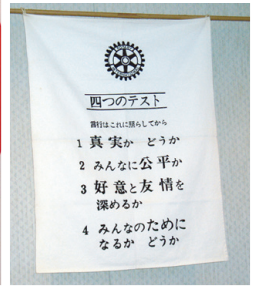 四つのテスト
言行はこれに照らしてから
1 真実か どうか
2 みんなに公平か
3 好意と友情を
深めるか
4 みんなのために
なるか どうか